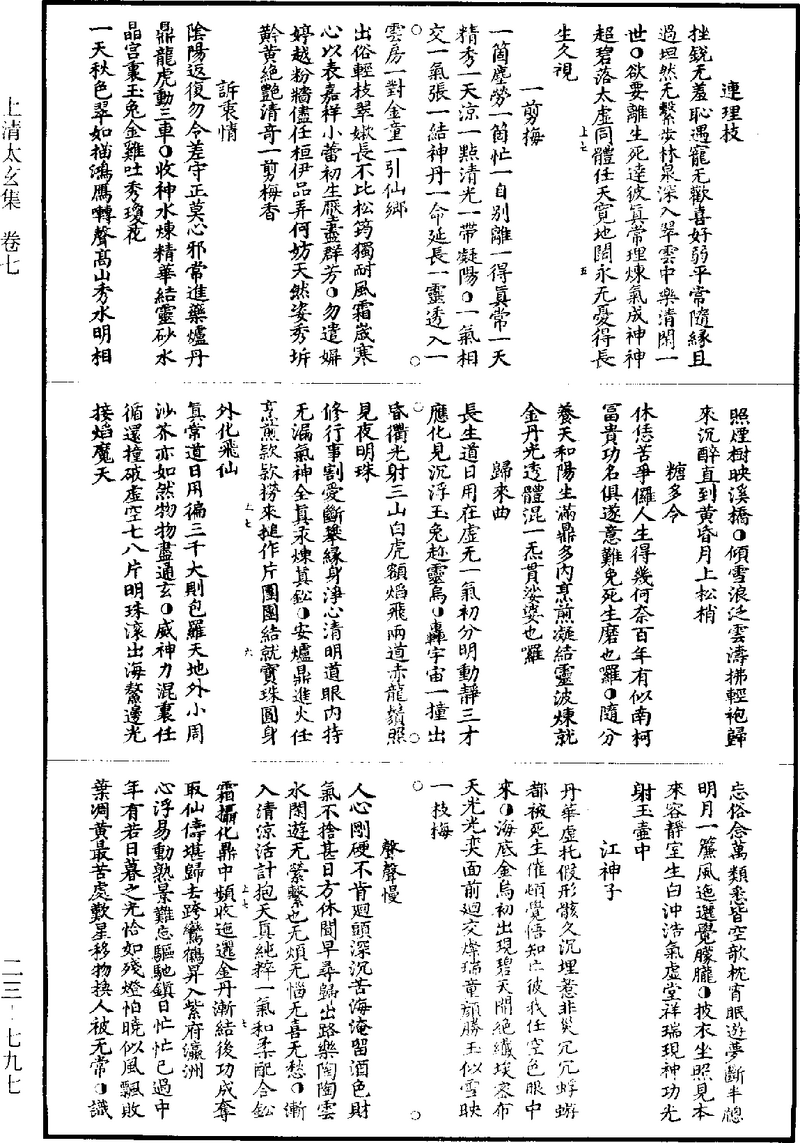 連理枝
挫銳无羞恥遇寵无歡喜好弱平常隨緣且
過坦然无繫安林泉深入翠雲中樂清閑一
世○欲要離生死達彼真常理煉氣成神神
超碧落太虛同體任天寬地闊永无憂得長
生久視
上七
五
一剪梅
一箇塵勞一箇忙一自別離一得真常一天
精秀一天涼一點清光一帶凝陽○一氣相
交一氣張一結神丹一命延長一靈透入一
雲房一對金童一引仙鄉
出俗輕枝翠嫩長不比松筠獨耐風霜歲寒
心以表嘉祥小蕾初生壓盡群芳○勿遣娉
婷越粉牆儘任桓伊品弄何妨天然姿秀坼
黃絕艷清奇一剪梅香
訴衷情
陰陽返復勿令差守正莫心邪常進藥爐丹
鼎龍虎動三車○收神水煉精華結靈砂水
晶宮裏玉兔金雞吐秀瓊花
一天秋色翠如描鴻鴈囀聲高山秀水明相
照煙樹映溪橋○傾雪浪泛雲濤拂輕袍歸
來沉醉直到黃昏月上松梢
糖多令
休恁苦爭儸人生得幾何奈百年有似南柯
富貴功名俱遂意難免死生磨也囉○隨分
養天和陽生滿鼎多內烹煎凝結靈波煉就
金丹光透體混一炁貫娑婆也囉
歸來曲
長生道日用在虛无一氣初分明動靜三才
應化見沉浮玉兔趂靈烏○轟宇宙一撞出
昏衢光射三山白虎額焰飛兩道赤龍鬚照
見夜明珠
修行事割愛斷攀緣身淨心清明道眼內持
无漏氣神全真汞煉真鈆○安爐鼎進火任
烹煎款款撈來搥作片團團結就寶珠圓身
外化飛仙
上七
六
真常道日用徧三千大則包羅天地外小周
沙芥亦如然物物盡通玄○威神力混裏任
循還撞破虛空七八片明珠滾出海鰲邊光
接焰魔天
忘俗念萬類悉皆空欹枕宵眠遊夢斷半牕
明月一簾風迤邐覺朦朧○披衣坐照見本
來容靜室生白沖浩氣虛堂祥瑞現神功光
射玉壺中
江神子
丹華虛托假形骸久沉埋惹非災冗冗蜉蝣
都被死生催頓覺悟知亡彼我任空色眼中
來○海底金烏初出現碧天開絕纖埃密布
天光光奕面前迴交燦瑞童顏勝玉似雪映
一枝梅
聲聲慢
人心剛硬不肯迴頭深沉苦海淹留酒色財
氣不捨甚日方休聞早尋歸出路樂陶陶雲
水閑遊无縈繫也无煩无惱无喜无愁○漸
入清涼活計抱天真純粹一氣和柔配合鈆
霜攝化鼎中頻收迤邐金丹漸結後功成奪
上七
七
取仙儔堪歸去跨鸞鶴昇入紫府瀛洲
心浮易動熟景難忘驅馳鎮日忙忙已過中
年有若日暮之光恰如殘燈怕曉似風飄敗
葉凋黃最苦處歎星移物換人被无常○識
上清太玄集 卷七
二三－七九七